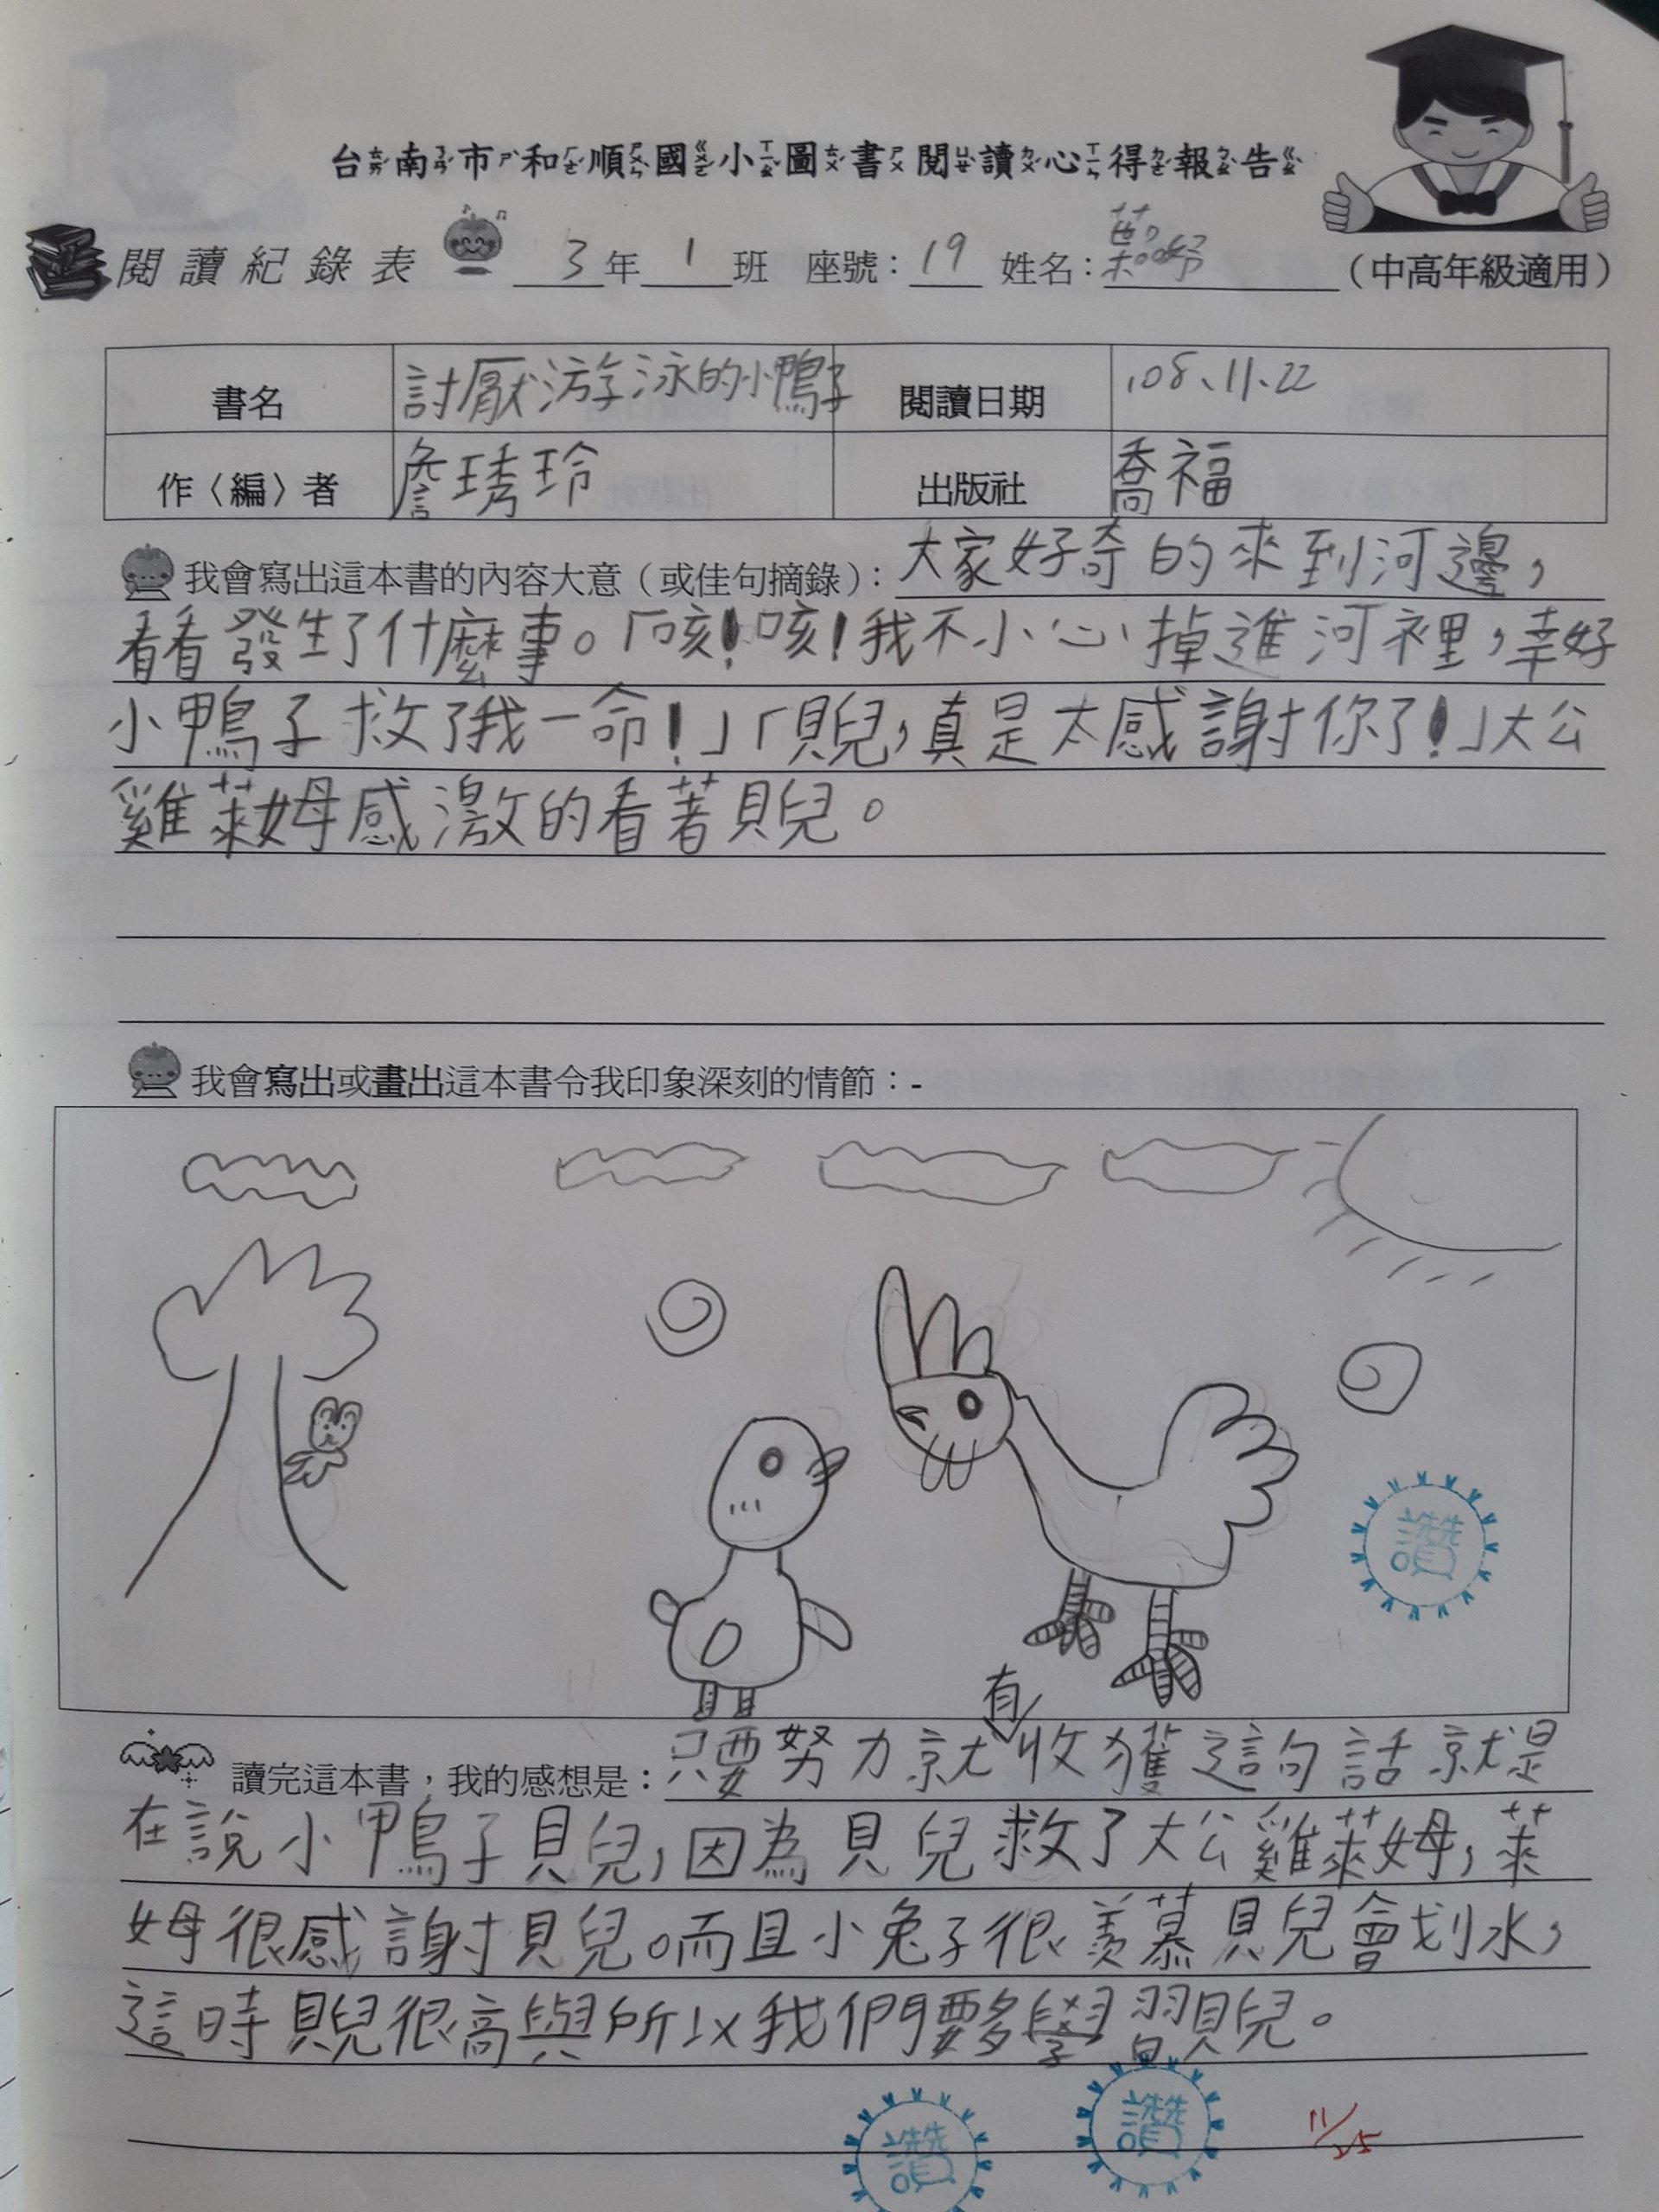 台南市和順國小圖書閱讀心得報告
閱讀紀錄表 3年1班 座號：19 姓名： （中高年級適用）
書名 討厭游泳的小鴨子 閱讀日期 108、11、22
作〈編〉者 詹琇玲 出版社 喬福
我會寫出這本書的內容大意（或佳句摘錄）：大家好奇的來到河邊，
看看發生了什麼事。「咳！咳！我不小心掉進河裡，幸好
小鴨子救了我一命！」「貝兒，真是太感謝你了！」大公
雞萊姆感激的看著貝兒。
我會寫出或畫出這本書令我印象深刻的情節：-
讚
只要努力就有收獲這句話就是
讀完這本書，我的感想是：
在說小鴨子貝兒，因為貝兒救了大公雞萊姆，萊
姆很感謝貝兒。而且小兔子很羨慕貝兒會划水，
這時貝兒很高興所以我們要多學習貝兒。
讚 讚 11/25